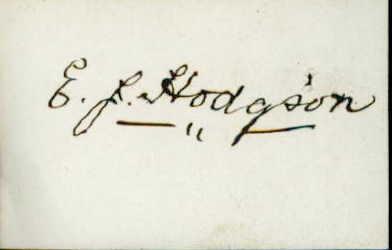 E. J. Hodgson